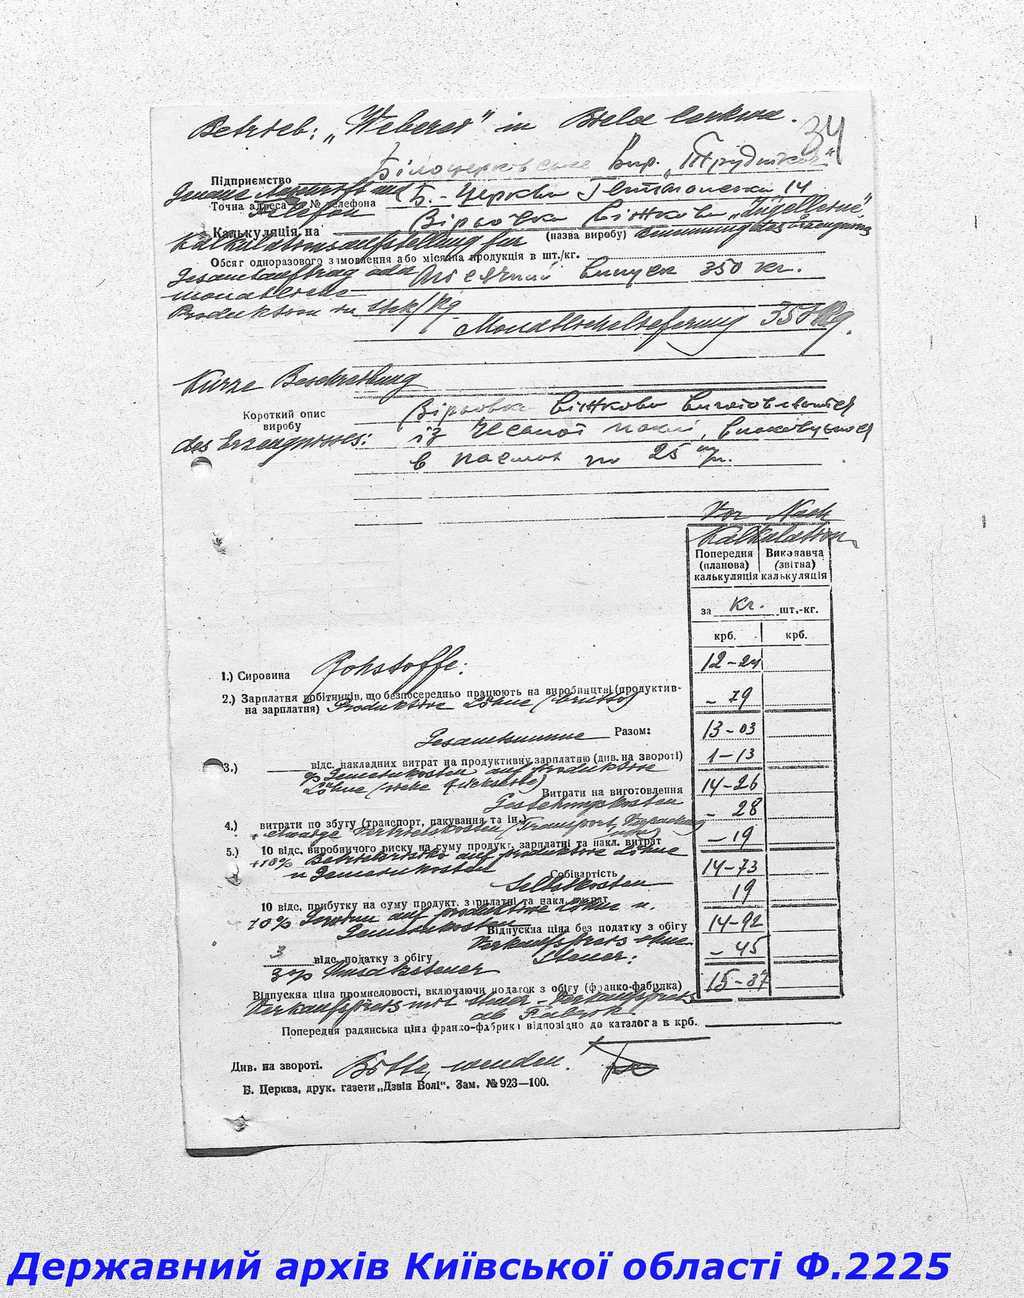 Betrieb: „Weberei" in Biela Cerkwa.
34
Підприємство Білоцерківське вир. „Трудівник"
Genaue Adresse und
Точна адреса і № телефона Б.-Церква 14
Telefon
Калькуляція на Вірьовка віжкова „Zügelleine"
Kalkulationsaufstellung für (назва виробу) Benennung des Erzeugniss
Обсяг одноразового замовлення або місячна продукція в шт./кг.
Gesamtauftrag oder Місячний випуск 350 кг.
monatliche
Produktion in Stck/Kg
Monatlichelieferung 350 Kg.
Kurze Beschreibung
Короткий опис
виробу
Вірьовка віжкова виготовляється
des Erzeugnisses: із чесаної паклі,
в пасмах по 25
Vor Nach
Kalkulation
Попередня (планова) калькуляція
Виконавча (звітна) калькуляція
за кг. шт.-кг.
крб. крб.
1.) Сировина Rohstoffe: 12-24
2.) Зарплатня робітників, що безпосередньо працюють на виробництві (продуктив-
на зарплатня) Produktive Löhne (brutto) - 79
Gesamtsumme Разом: 13-03
3.) відс. накладних витрат на продуктивну зарплатню (див. на звороті) 1-13
% Gemeinkosten auf produktive
Löhne (siehe Rückseite)
Витрати на виготовлення 14-26
Gestehungskosten
4.) витрати по збуту (транспорт, пакування та ін.) - 28
etwaige Vertriebskosten (Transport, Verpackung
5.) 10 відс. виробничого риску на суму продукт. зарплатні та накл. витрат - 19
+10% Betriebsrisiko auf produktive Löhne
u Gemeinkosten
Собівартість 14-73
Selbstkosten
10 відс. прибутку на суму продукт. зарплатні та накл. витрат 19
10% Gewinn auf produktive Löhne u.
Gemeinkosten
Відпускна ціна без податку з обігу 14-92
Verkaufspreis ohne
Steuer:
3 відс. податку з обігу - 45
3% Umsatzsteuer
Відпускна ціна промисловості, включаючи податок з обігу (франко-фабрика) 15-37
Verkaufspreis mit Steuer - Verkaufspreis
ab Fabrik
Попередня радянська ціна франко-фабрики відповідно до каталога в крб.
Див. на звороті. Bitte, wenden.
Б. Церква, друк. газети „Дзвін Волі". Зам. № 923—100.
Державний архів Київської області Ф.2225